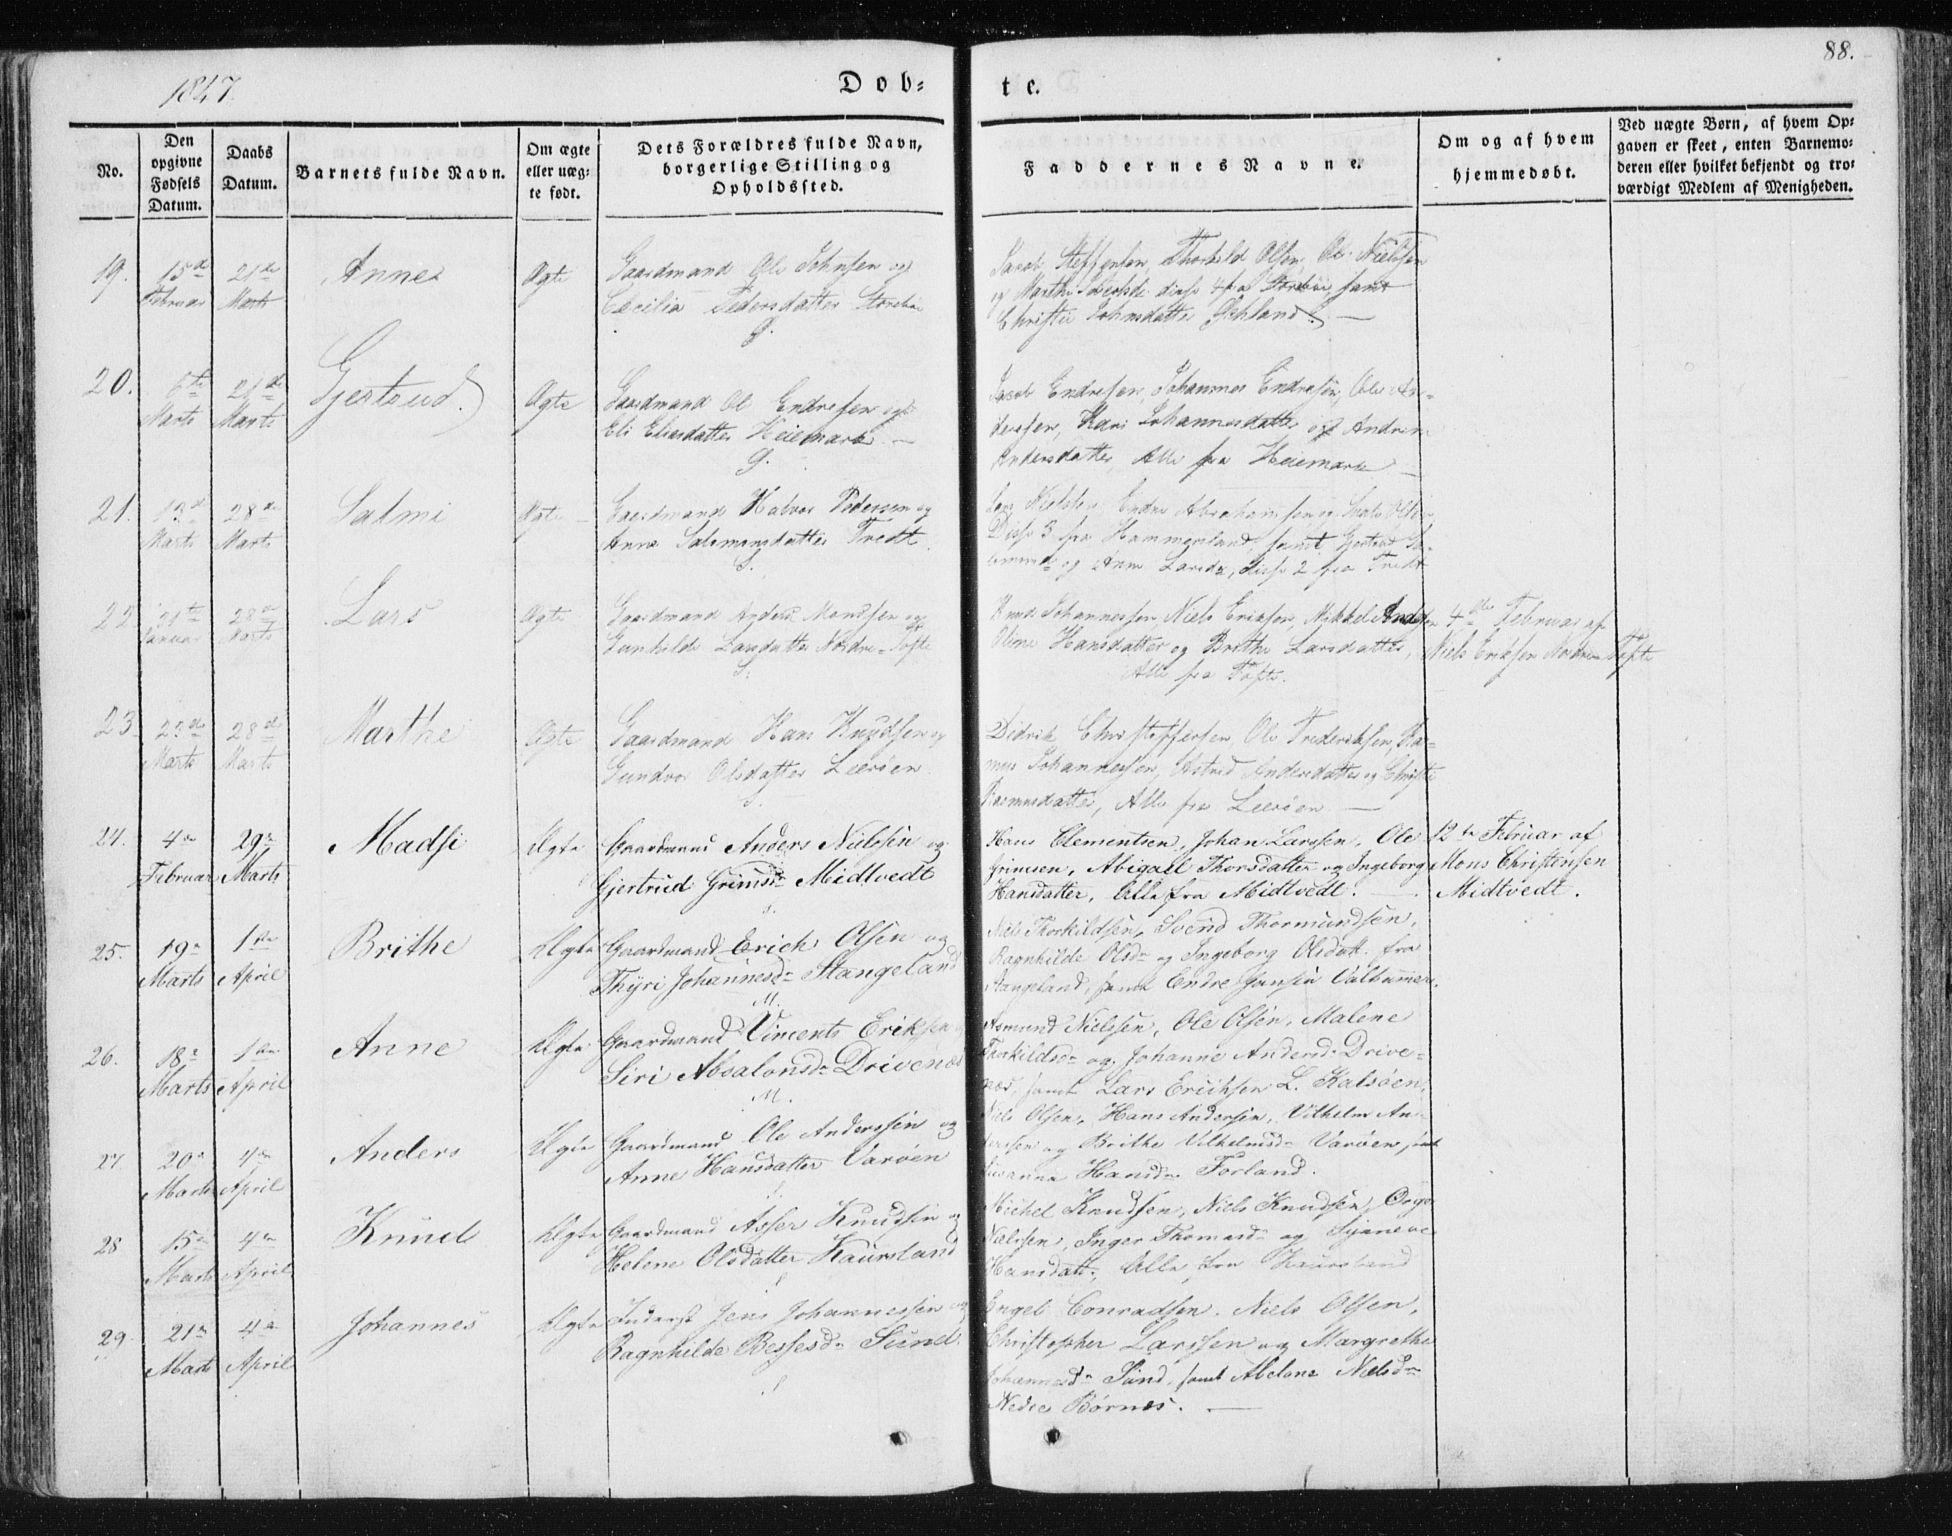 88.
1847.
Døb=
te.
No.
Den opgivne Fødsels Datum.
Daabs Datum.
Barnets fulde Navn.
Om ægte eller uæg= te født.
Dets Forældres fulde Navn, borgerlige Stilling og Opholdssted.
Faddernes Navne.
Om og af hvem hjemmedøbt.
Ved uægte Børn, af hvem Op= gaven er skeet, enten Barnemo= deren eller hvilket bekjendt og tro= værdigt Medlem af Menigheden.
19. 15de 21de Annes Ægte Gaardmand Ole Johnsen og
Februar Marts Cecilia Pedersdatter Storebøe
G.
Jacob Steffensen, Thorkild Olsen, Ole Nielsen
og Marthe disse fra Storebøe samt
Christie Johnsdatter Øchland
20. 6te 21de Gjertrud. Ægte Gaardmand Ol Endresen og
Marts Marts Eli Eliasdatter Heiemark
G.
Jacob Endresen, Johannes Endresen, Ole An=
dersen, Kari Johannesdatter og Andrea
Andersdatter, Alle fra Heiemark
21. 13de 28de Salmi Ægte Gaardmand Halvor Pedersen og
Marts Marts Anna Salamonsdatter Tredt
S.
Nielsen, Endre Abrahamsen og
Disse 3 fra Hammersland samt Gjertrud
og Anne Larsd., disse 2 fra Tredt
22 31te 28de Lars Ægte Gaardmand Anders Monsen og
Januar Marts Gunhilde Larsdatter Nordre-Tofte
S.
Knud Johannessen, Niels Eriksen, Mikkel Anders
Oline Hansdatter og Brithe Larsdatter,
Alle fra Tofte.
4de Februar af
Niels Eriksen Nordre Tofte
23 23de 28de Marthe Ægte Gaardmand Hans Knudsen og
Marts Marts Gundvor Olsdatter Leerøen
S.
Didrik Christoffersen, Ole Frederiksen, Ras=
mus Johannessen, Astrid Andersdatter og Christie
Rasmusdatter, Alle fra Leerøen
24. 4de 29de Madsi Ægte Gaardmand Anders Nielsen og
Februar Marts Gjertrud Grimsdr Midtvedt
S.
Hans Clementsen, Johan Larssen, Ole
Grimsen, Abigael Thorsdatter og Ingeborg
Hansdatter, Alle fra Midtvedt.
12te Februar af
Mons Christensen
Midtvedt.
25. 19de 1ste Brithe Ægte Gaardmand Erich Olsen og
Marts April Thyri Johannesdr Stangeland
M.
Niels Thorkildsen, Svend Thormundsen,
Ragnhilde Olsdr og Ingeborg Olsdatt. fra
Stangeland, samt Endre Jansen
26. 18de 1ste Anne Ægte Gaardmand Vincents Eriksen
Marts April Siri Absalonsdr Drivenæs
M.
Asmund Nielsen, Ole Olsen, Malene
Thorkildsdr og Johanne Andersdr Drive=
næs, samt Lars Eriksen L. Kalsøen.
27. 20de 4de Anders Ægte Gaardmand Ole Anderssen og
Marts April Anne Hansdatter Varøen
S.
Niels Olsen, Hans Andersen, Vilhelm An=
dersen og Brithe Vilhelmsdr Varøen, samt
Susanna Hansdr Forland.
28 15de 4de Knud Ægte Gaardmand Asser Knudsen og
Marts April Helene Olsdatter Kaursland
S
Michel Knudsen, Niels Knudsen,
Nielsen, Inger Thomasdr og Synneve
Hansdatt., Alle fra Kaursland
29. 21de 4de Johannes Ægte Inderst Jens Johannessen og
Marts April Ragnhilde Bessesdr Sund
S
Engel Conradsen. Niels Olsen,
Christopher Larssen og Margrethe
Johannesdr Sund, samt Abelone Nielsdr
Nedre Børnes.